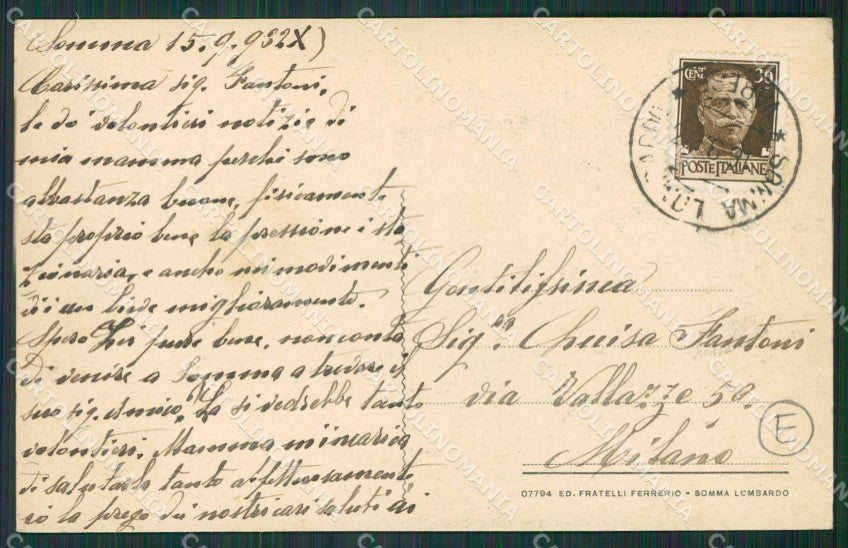 Somma 15.9.932X)
Carissima sig. Fantoni,
le do volontieri notizie di
mia mamma perchè sono
abbastanza buone, fisicamente
sta proprio bene la pressione è sta
zionaria, e anche nei movimenti
di un lieve miglioramento.
Spero Lei pure bene, non conta
di venire a Somma a trovare il
suo sig. Amico, La si vedrebbe tanto
volontieri. Mamma m'incarica
di salutarla tanto affettuosamente
io la prego dei nostri cari saluti ai
CENT 30
POSTE ITALIANE
SOMMA LOMBARDO
Gentilissima
Sig.ra Luisa Fantoni
via Vallazze 50.
Milano
E
07794 ED. FRATELLI FERRERIO - SOMMA LOMBARDO
CARTOLINOMANIA